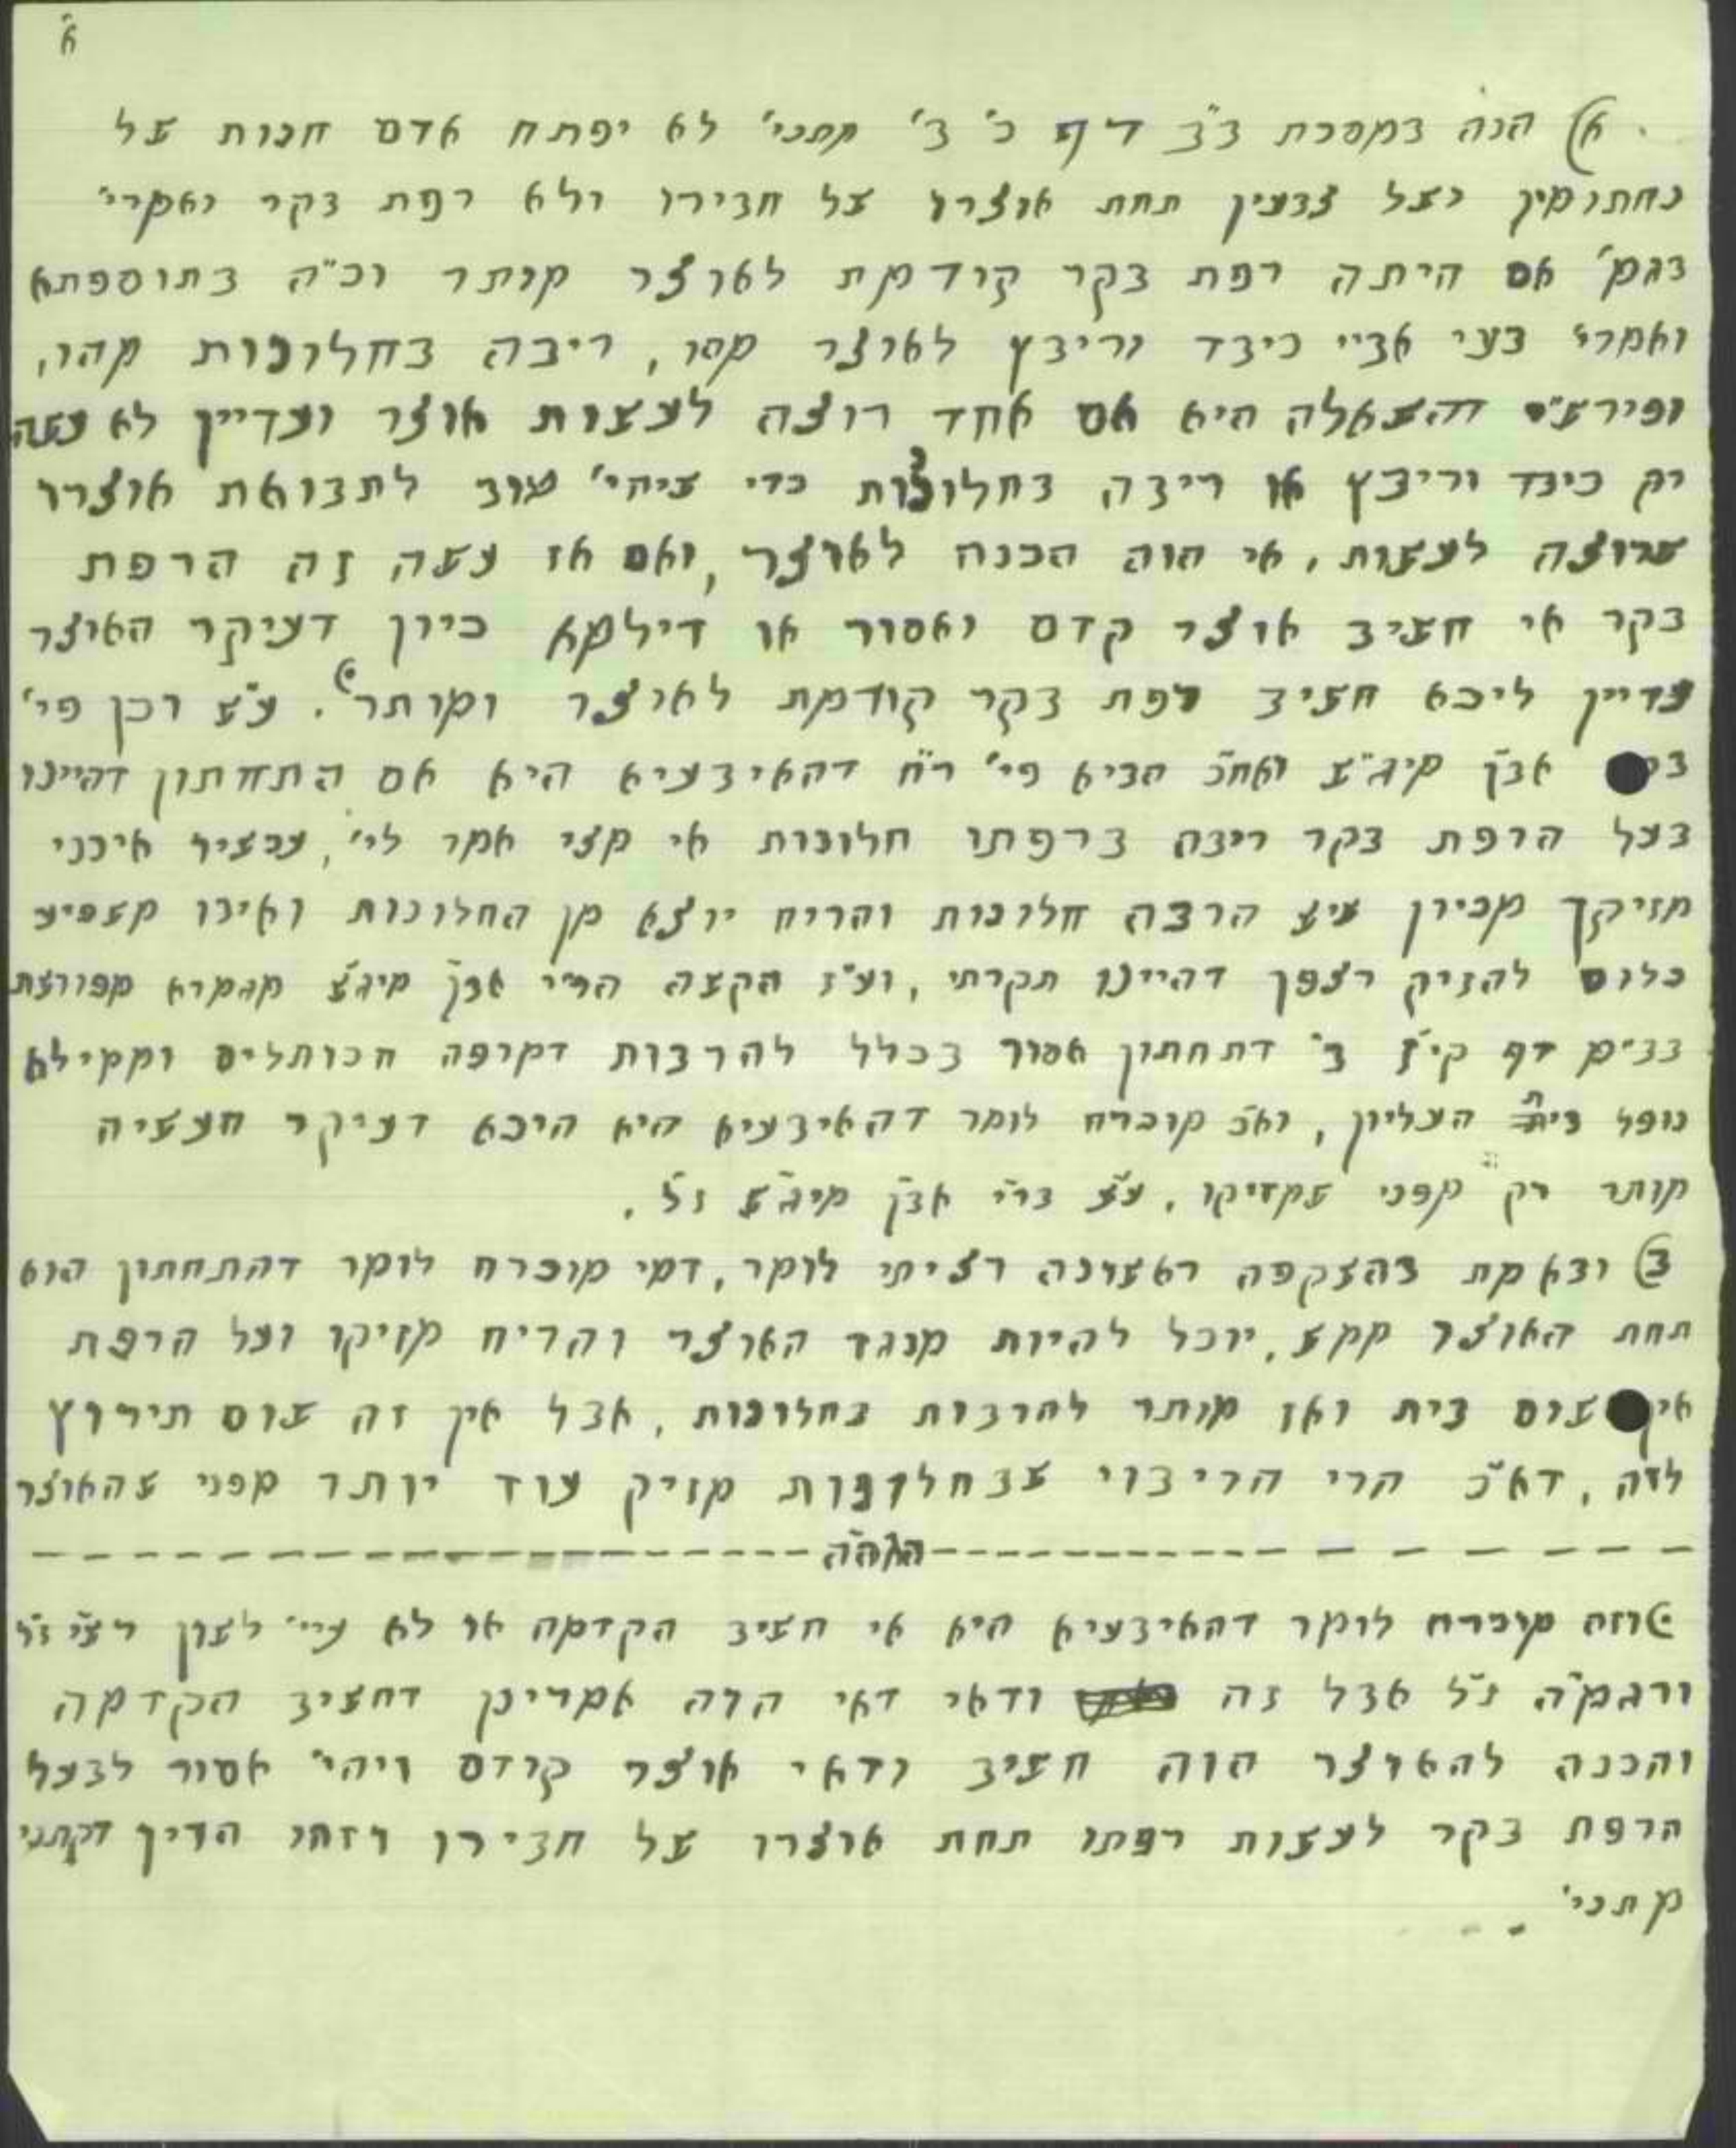 א'
א) הנה במסכת ב"ב דף כ' ב' מתני' לא יפתח אדם חנות של
נחתומין ושל צבעין תחת אוצרו של חבירו ולא רפת בקר ואמרי'
בגמ' אם היתה רפת בקר קודמת לאוצר מותר וכ"ה בתוספתא
ואמרי' בעי אביי כיבד וריבץ לאוצר מהו, ריבה בחלונות מהו,
ופירש"י דהשאלה היא אם אחד רוצה לעשות אוצר ועדיין לא עשה
רק כיבד וריבץ או ריבה בחלונות כדי שיהי' טוב לתבואת אוצרו
שרוצה לעשות, אי הוה הכנה לאוצר, ואם אז עשה זה הרפת
בקר אי חשיב אוצר קדם ואסור או דילמא כיון דעיקר האוצר
עדיין ליכא חשיב רפת בקר קודמת לאוצר ומותר. ע"ש וכן פי'
אבן מיג"ש ואח"כ הביא פי' ר"ח דהאיבעיא היא אם התחתון דהיינו
בעל הרפת בקר ריבה ברפתו חלונות אי מצי אמר לי', עכשיו אינני
מזיקך מכיון שיש הרבה חלונות והריח יוצא מן החלונות ואינו משפיע
כלום להזיק רצפך דהיינו תקרתי, וע"ז הקשה הר"י אבן מיג"ש מגמרא מפורשת
בב"מ דף קי"ז ב' דתחתון אסור בכלל להרבות דמרפה הכותלים וממילא
נופל בית העליון, וא"כ מוכרח לומר דהאיבעיא היא היכא דעיקר העשיה
מותר רק מפני שמזיקו. ע"ש בר"י אבן מיג"ש ז"ל.
ב) ובאמת בהשקפה ראשונה רציתי לומר, דמי מוכרח לומר דהתחתון הוא
תחת האוצר ממש, יוכל להיות מנגד האוצר והריח מזיקו ועל הרפת
אין שום בית ואז מותר להרבות בחלונות, אבל אין זה שום תירוץ
לזה, דא"כ הרי הריבוי שבחלונות מזיק עוד יותר מפני שהאוצר
הגהה
וזה מוכרח לומר דהאיבעיא היא אי חשיב הקדמה או לא עיי' לשון רש"י ז"ל
ורגמ"ה ז"ל אבל זה ודאי דאי הוה אמרינן דחשיב הקדמה
והכנה להאוצר הוה חשיב ודאי אוצר קודם ויהי' אסור לבעל
הרפת בקר לעשות רפתו תחת אוצרו של חבירו וזהו הדין דקתני
מתני'